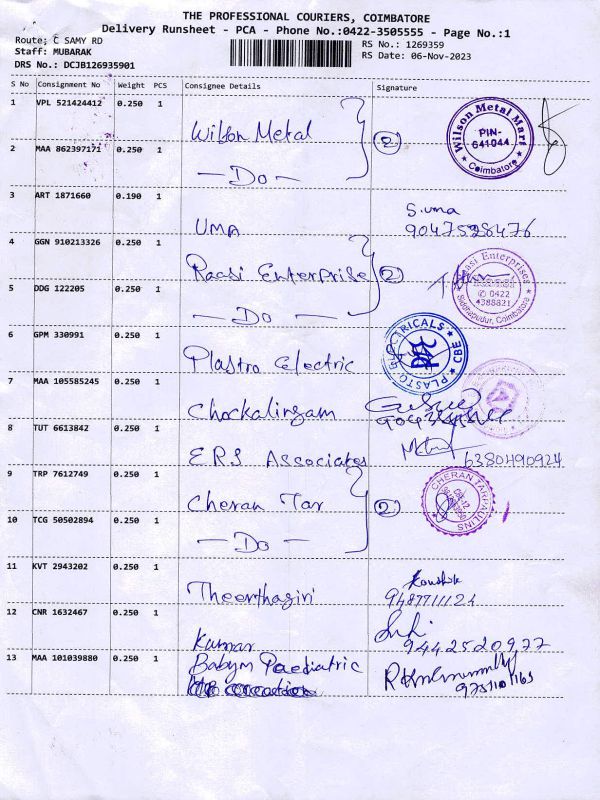 THE PROFESSIONAL COURIERS, COIMBATORE
Delivery Runsheet - PCA - Phone No.:0422-3505555 - Page No.:1
Route; C SAMY RD
Staff: MUBARAK
DRS No.: DCJB126935901
RS No.: 1269359
RS Date: 06-Nov-2023
S No Consignment No Weight PCS Consignee Details Signature
1 VPL 521424412 0.250 1 Wilson Metal 2
Wilson Metal Mart PIN- 641044 Coimbatore
2 MAA 862397171 0.250 1 — Do —
3 ART 1871660 0.190 1 UMA S.uma
9047528476
4 GGN 910213326 0.250 1 Raasi Enterprise 2
Raasi Enterprises ✆ 0422 4388821 Siddhapudur, Coimbatore
5 DDG 122205 0.250 1 — Do —
6 GPM 330991 0.250 1 Plastro Electric
PLASTO ELECTRICALS CBE
7 MAA 105585245 0.250 1 Chockalingam
8 TUT 6613842 0.250 1 E.R.S Associates
6380490924
9 TRP 7612749 0.250 1 Cheran Tar 2
CHERAN TARPAULINS
10 TCG 50502894 0.250 1 — Do —
11 KVT 2943202 0.250 1 Theerthagiri Koushik
9487711121
12 CNR 1632467 0.250 1 Kumar
9442520977
13 MAA 101039880 0.250 1 Babym Paediatric